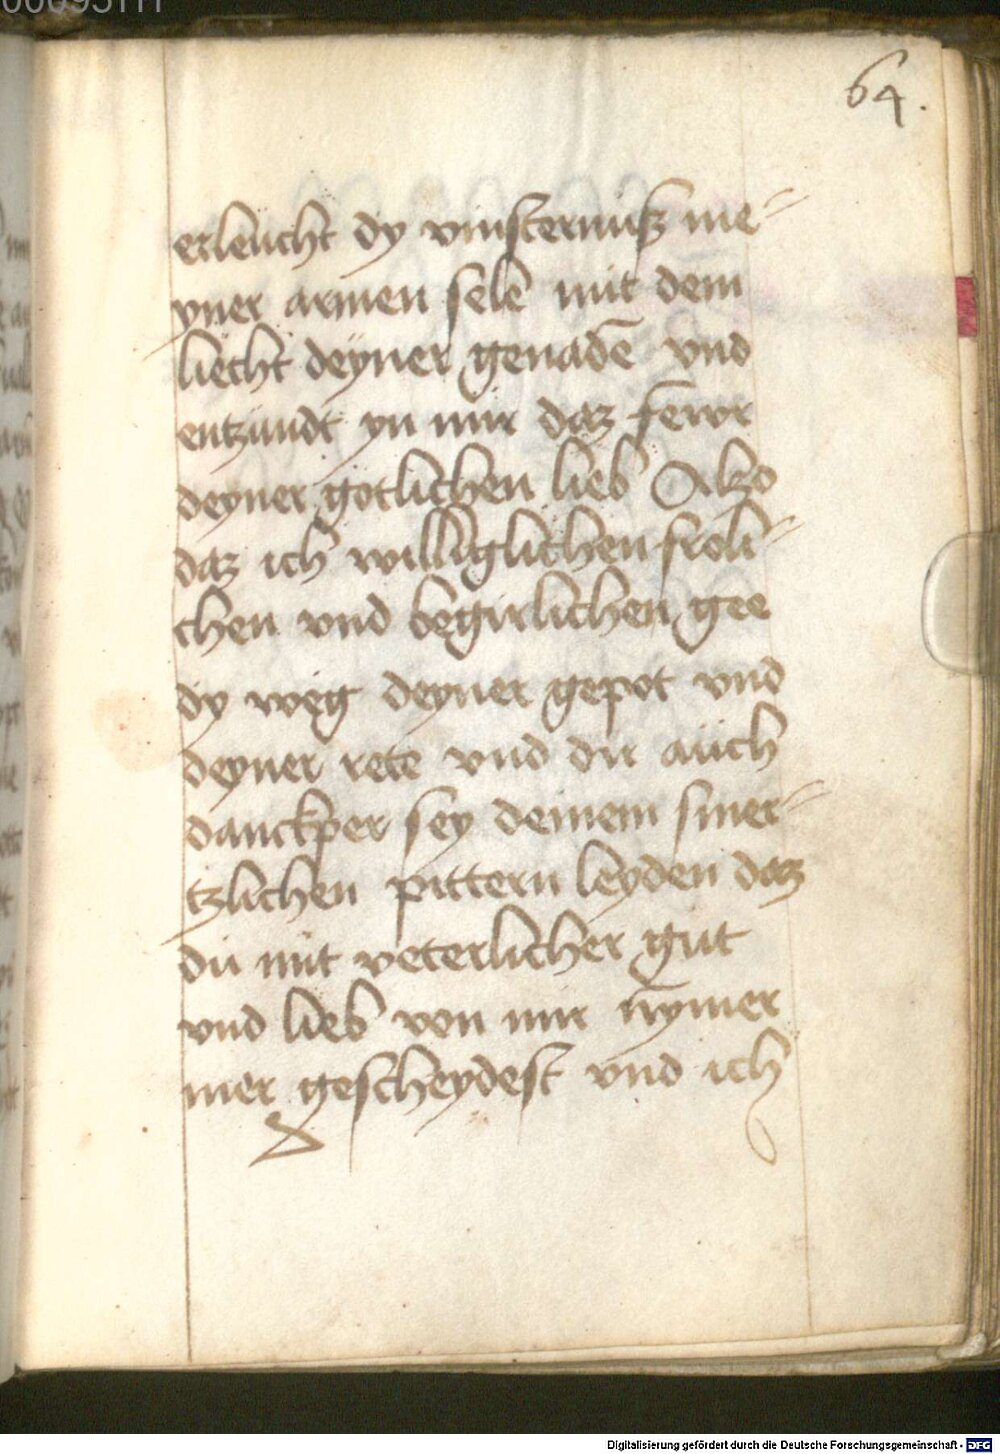 64.
erleucht dy vinsternuß me-
yner armen sele mit dem
liecht deyner genadē vnd
entzundt yn mir daz fewr
deyner gotlichen lieb Alzo
daz ich williglichen froli-
chen vnd begirlichen gee
dy weg deyner gepot vnd
deyner rete vnd dir auch
danckper sey deinem smer-
tzlichen pittern leyden daz
du mit veterlicher gut
vnd lieb von mir nÿmer
mer gescheydest vnd ich
Digitalisierung gefördert durch die Deutsche Forschungsgemeinschaft - DFG